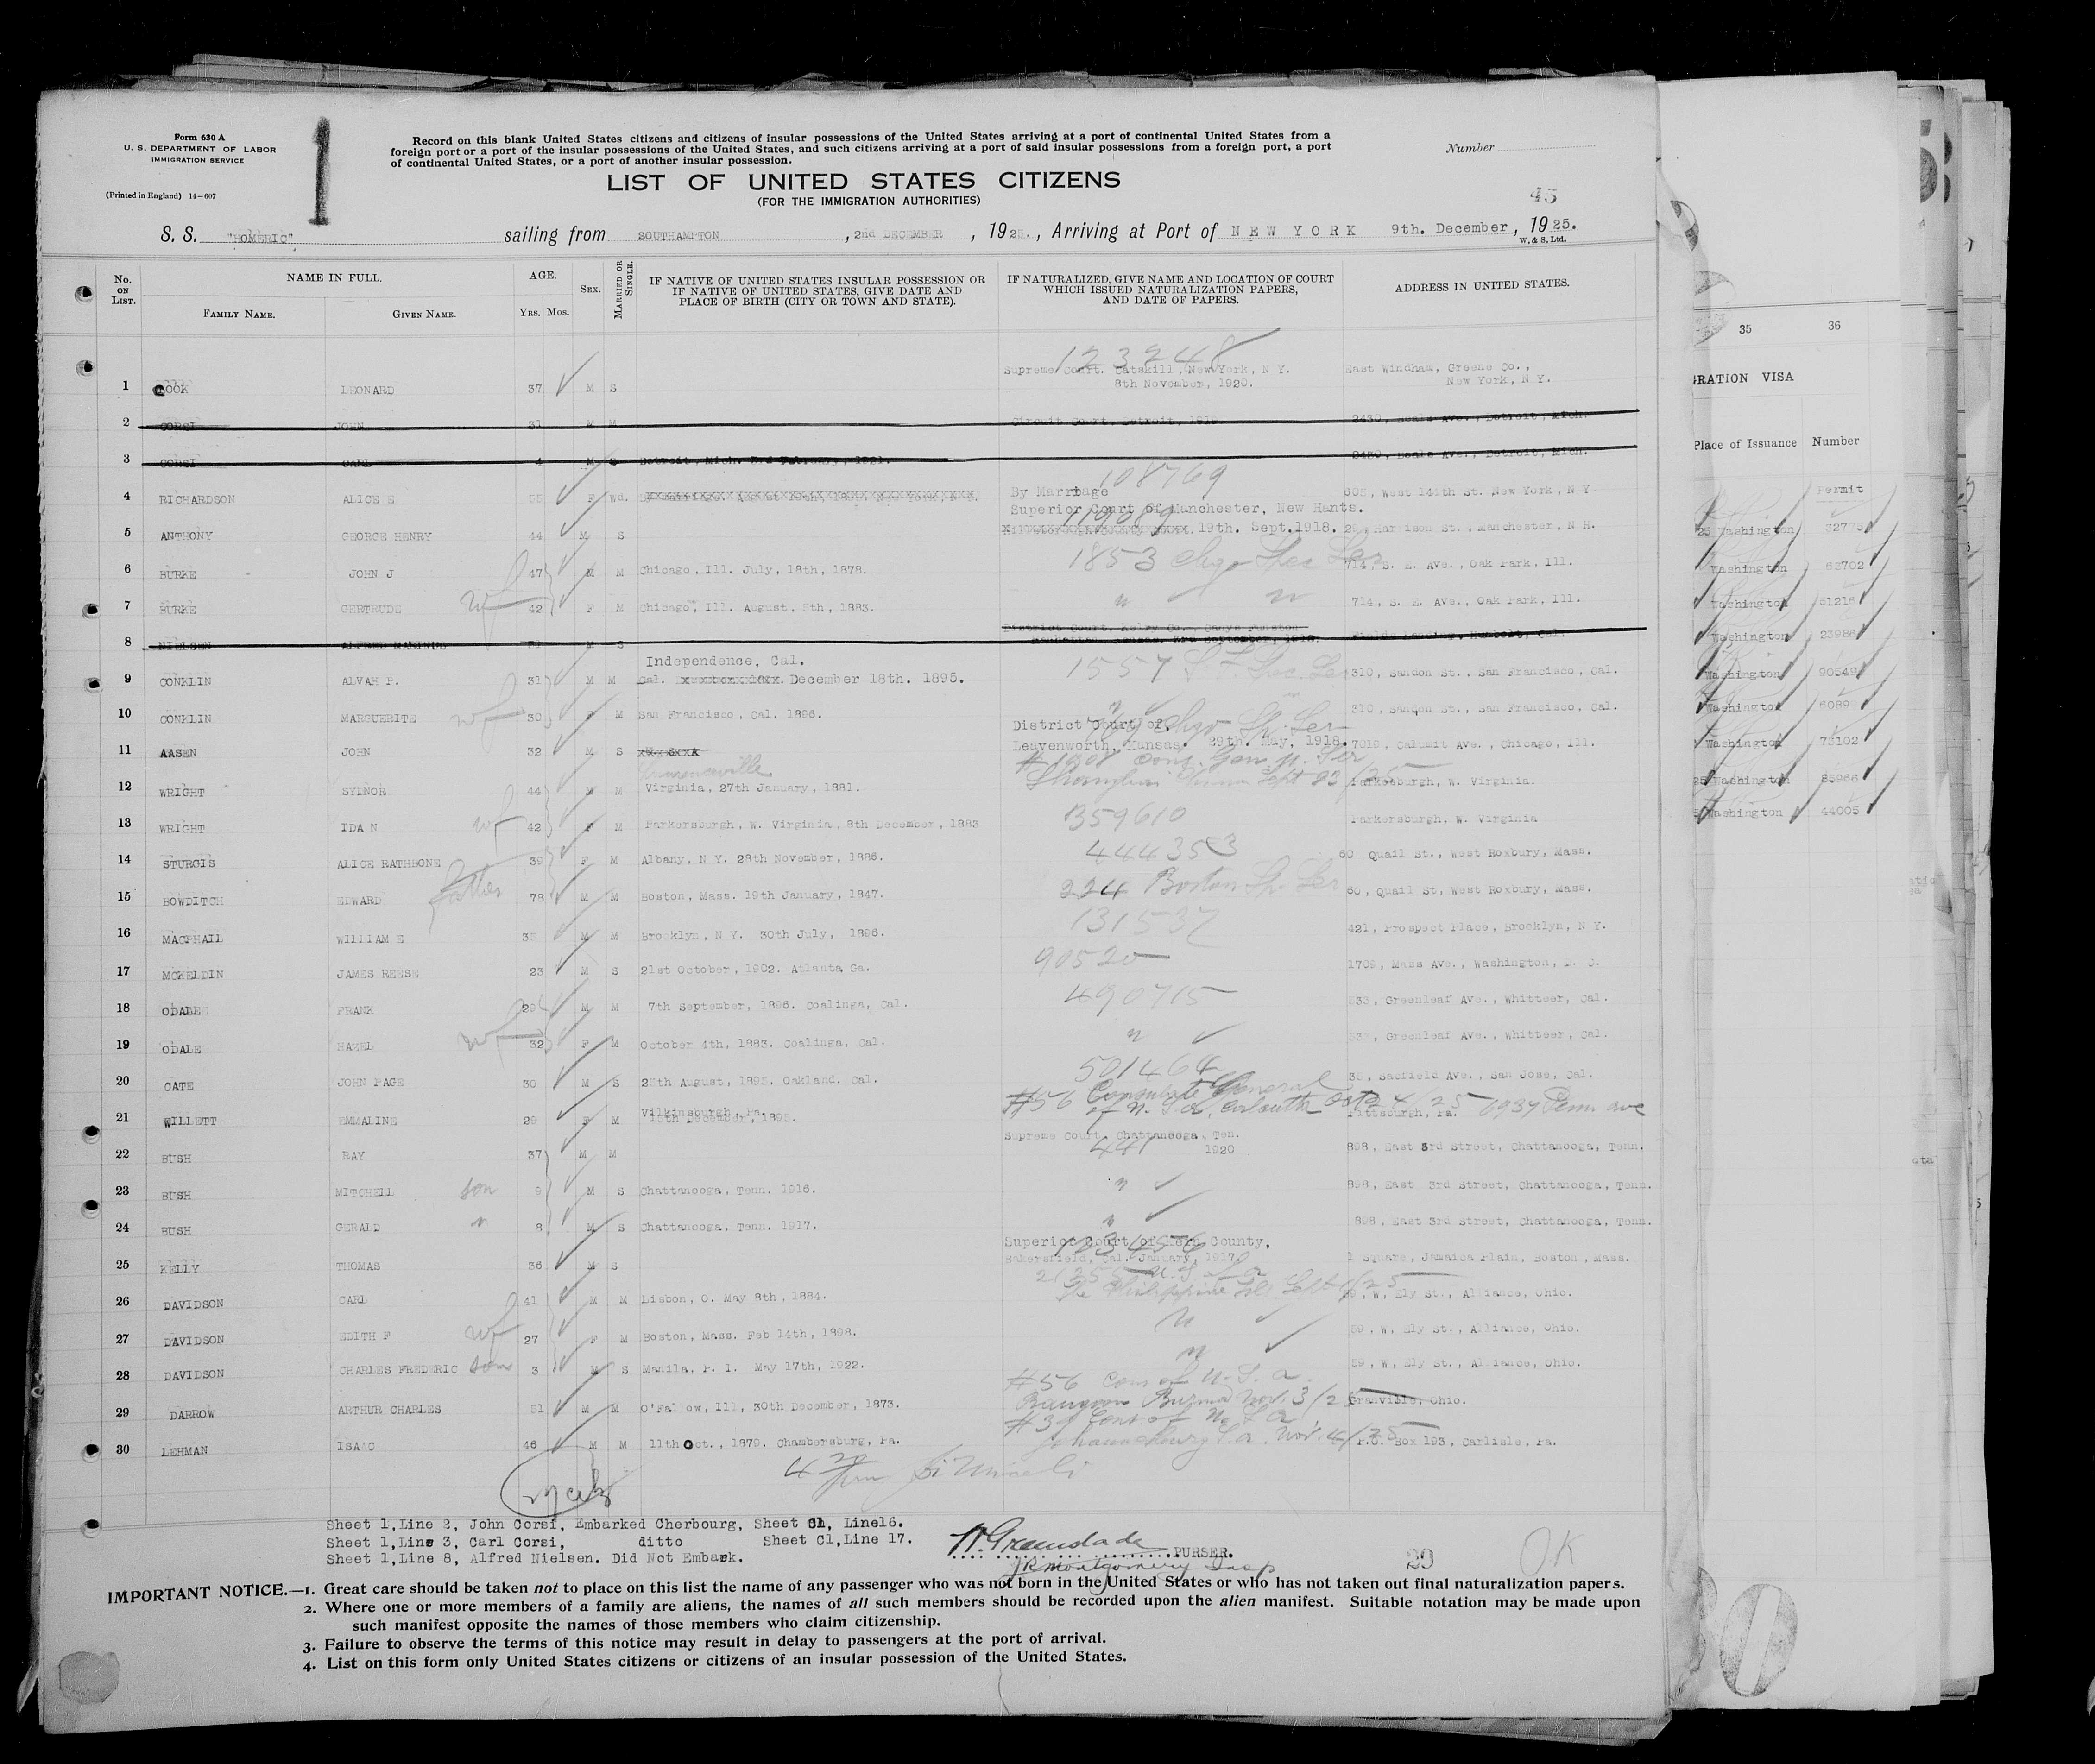 Form 630 A
U. S. DEPARTMENT OF LABOR
IMMIGRATION SERVICE
(Printed in England) 14—607
1
Record on this blank United States citizens and citizens of insular possessions of the United States arriving at a port of continental United States from a
foreign port or a port of the insular possessions of the United States, and such citizens arriving at a port of said insular possessions from a foreign port, a port
of continental United States, or a port of another insular possession.
Number
LIST OF UNITED STATES CITIZENS
(FOR THE IMMIGRATION AUTHORITIES)
45
S. S. "HOMERIC" sailing from SOUTHAMPTON, 2nd DECEMBER, 1925., Arriving at Port of NEW YORK 9th. December, 1925.
W. & S. Ltd.
No. ON LIST.
NAME IN FULL.
FAMILY NAME. GIVEN NAME.
AGE.
YRS. MOS.
SEX.
MARRIED OR SINGLE.
IF NATIVE OF UNITED STATES INSULAR POSSESSION OR
IF NATIVE OF UNITED STATES, GIVE DATE AND
PLACE OF BIRTH (CITY OR TOWN AND STATE).
IF NATURALIZED, GIVE NAME AND LOCATION OF COURT
WHICH ISSUED NATURALIZATION PAPERS,
AND DATE OF PAPERS.
ADDRESS IN UNITED STATES.
123248
Supreme Court. Catskill, New York, N Y. East Windham, Greene Co.,
1 COOK LEONARD 37 M S 8th November, 1920. New York, N Y.
2 CORSI JOHN 31 M M Circuit Court, Detroit, 1919. 2430, Beals Ave., Detroit, Mich.
3 CORSI CARL 4 M S Detroit, Mich. 2nd February, 1921. 2430, Beals Ave., Detroit, Mich.
108769
4 RICHARDSON ALICE E 55 F Wd. By Marriage 605, West 144th St. New York, N Y
Superior Court of Manchester, New Hants.
419089
5 ANTHONY GEORGE HENRY 44 M S 19th. Sept.1918. Harrison St., Manchester, N H.
6 BURKE JOHN J 47 M M Chicago, Ill. July, 18th, 1878. 1853 Chgo Spec Ser 714, S. E. Ave., Oak Park, Ill.
7 BURKE GERTRUDE wf 42 F M Chicago, Ill. August, 5th, 1883. " " 714, S. E. Ave., Oak Park, Ill.
8 NIELSEN ALFRED M S
Independence, Cal.
9 CONKLIN ALVAH P. 31 M M Cal. December 18th. 1895. 1557 S.F. Spc. Ser 310, Sandon St., San Francisco, Cal.
10 CONKLIN MARGUERITE wf 30 F M San Francisco, Cal. 1896. 310, Sandon St., San Francisco, Cal.
District Court of
11 AASEN JOHN 32 M S Leavenworth, Kansas. 29th. May, 1918. 7019, Calumit Ave., Chicago, Ill.
12 WRIGHT SYDNOR 44 M M Virginia, 27th January, 1881. Parkesburgh, W. Virginia.
13 WRIGHT IDA N wf 42 F M Parkersburgh, W. Virginia, 8th December, 1883 359610 Parkersburgh, W. Virginia
14 STURGIS ALICE RATHBONE 39 F M Albany, N Y. 28th November, 1886. 444353 60 Quail St., West Roxbury, Mass.
15 BOWDITCH EDWARD father 78 M M Boston, Mass. 19th January, 1847. 224 Boston Sp. Ser 60, Quail St, West Roxbury, Mass.
16 MACPHAIL WILLIAM E M M Brooklyn, N Y. 30th July, 1896. 131537 421, Prospect Place, Brooklyn, N Y.
17 MCKELDIN JAMES REESE 23 M S 21st October, 1902. Atlanta Ga. 90520 1709, Mass Ave., Washington, D. C.
18 ODALE FRANK 29 M M 7th September, 1896. Coalinga, Cal. 490715 533, Greenleaf Ave., Whitteer, Cal.
19 ODALE HAZEL wf 32 F M October 4th, 1883. Coalinga, Cal. " 533, Greenleaf Ave., Whitteer, Cal.
20 CATE JOHN PAGE 30 M S 25th August, 1895. Oakland. Cal. 501464 35, Ave., San Jose, Cal.
#56 Consulate General
21 WILLETT EMMALINE 29 F M Wilkinsburgh, Pa. 15th December, 1895. of U. S. a, Calcutta Oct 24/25 Pittsburgh, Pa. 6937 Penn ave
Supreme Court. Chattanooga, Ten.
22 BUSH RAY 37 M M 441 1920 898, East 3rd Street, Chattanooga, Tenn.
23 BUSH MITCHELL son 9 M S Chattanooga, Tenn. 1916. " 898, East 3rd Street, Chattanooga, Tenn.
24 BUSH GERALD " 8 M S Chattanooga, Tenn. 1917. " 898, East 3rd Street, Chattanooga, Tenn.
Superior Court of Kern County,
123456
25 KELLY THOMAS 36 M S Bakersfield, Cal. January, 1917. Square, Jamaica Plain, Boston, Mass.
26 DAVIDSON CARL 41 M M Lisbon, O. May 8th, 1884. 59, W, Ely St., Alliance, Ohio.
27 DAVIDSON EDITH F wf 27 F M Boston, Mass. Feb 14th, 1898. " 59, W, Ely St., Alliance, Ohio.
28 DAVIDSON CHARLES FREDERIC son 3 M S Manila, P. I. May 17th, 1922. " 59, W, Ely St., Alliance, Ohio.
#56 Cons of U. S. a.
29 DARROW ARTHUR CHARLES 51 M M O'Fallow, Ill, 30th December, 1873. Rangoon Burma Nov. 3/25 Granville, Ohio.
Cons of U. S. a
30 LEHMAN ISAAC 46 M M 11th Oct., 1879. Chambersburg, Pa. Johannesburg S. a. Nov. 4/25 P.O. Box 193, Carlisle, Pa.
Sheet 1,Line 2, John Corsi, Embarked Cherbourg, Sheet C1, Line16.
Sheet 1,Line 3, Carl Corsi, ditto Sheet C1,Line 17.
Sheet 1,Line 8, Alfred Nielsen. Did Not Embark.
PURSER.
JR Montgomery Insp
29
OK
IMPORTANT NOTICE.—1. Great care should be taken not to place on this list the name of any passenger who was not born in the United States or who has not taken out final naturalization papers.
2. Where one or more members of a family are aliens, the names of all such members should be recorded upon the alien manifest. Suitable notation may be made upon
such manifest opposite the names of those members who claim citizenship.
3. Failure to observe the terms of this notice may result in delay to passengers at the port of arrival.
4. List on this form only United States citizens or citizens of an insular possession of the United States.
35 36
GRATION VISA
Place of Issuance Number
Permit
25 Washington 32775
Washington 63702
Washington 51216
Washington 23986
Washington 90549
Washington 6089
Washington 73102
25 Washington 85966
Washington 44005